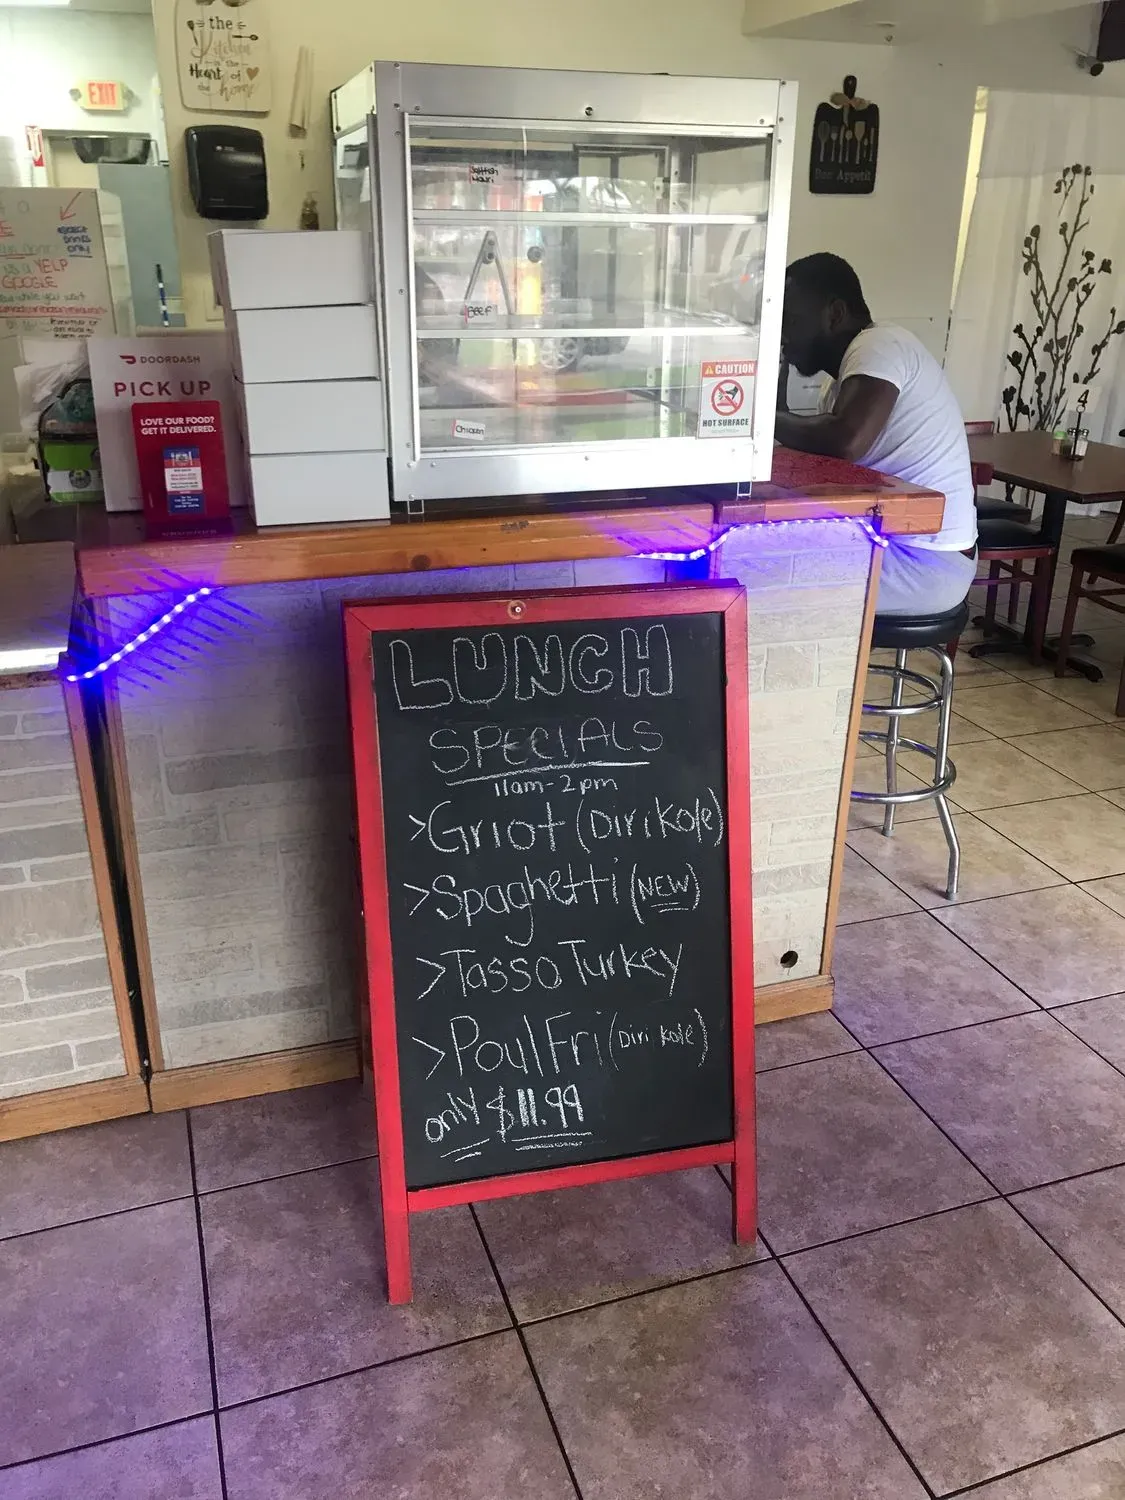 the
Kitchen
is the
Heart of
the home
EXIT
Bon Appetit
drinks
only
us a YELP
GOOGLE
while you wait
DOORDASH
PICK UP
LOVE OUR FOOD?
GET IT DELIVERED.
Beef
Chicken
CAUTION
HOT SURFACE
4
LUNCH
SPECIALS
11am-2pm
>Griot (Diri Kole)
>Spaghetti (NEW)
>Tasso Turkey
>Poul Fri (Diri Kole)
only $11.99